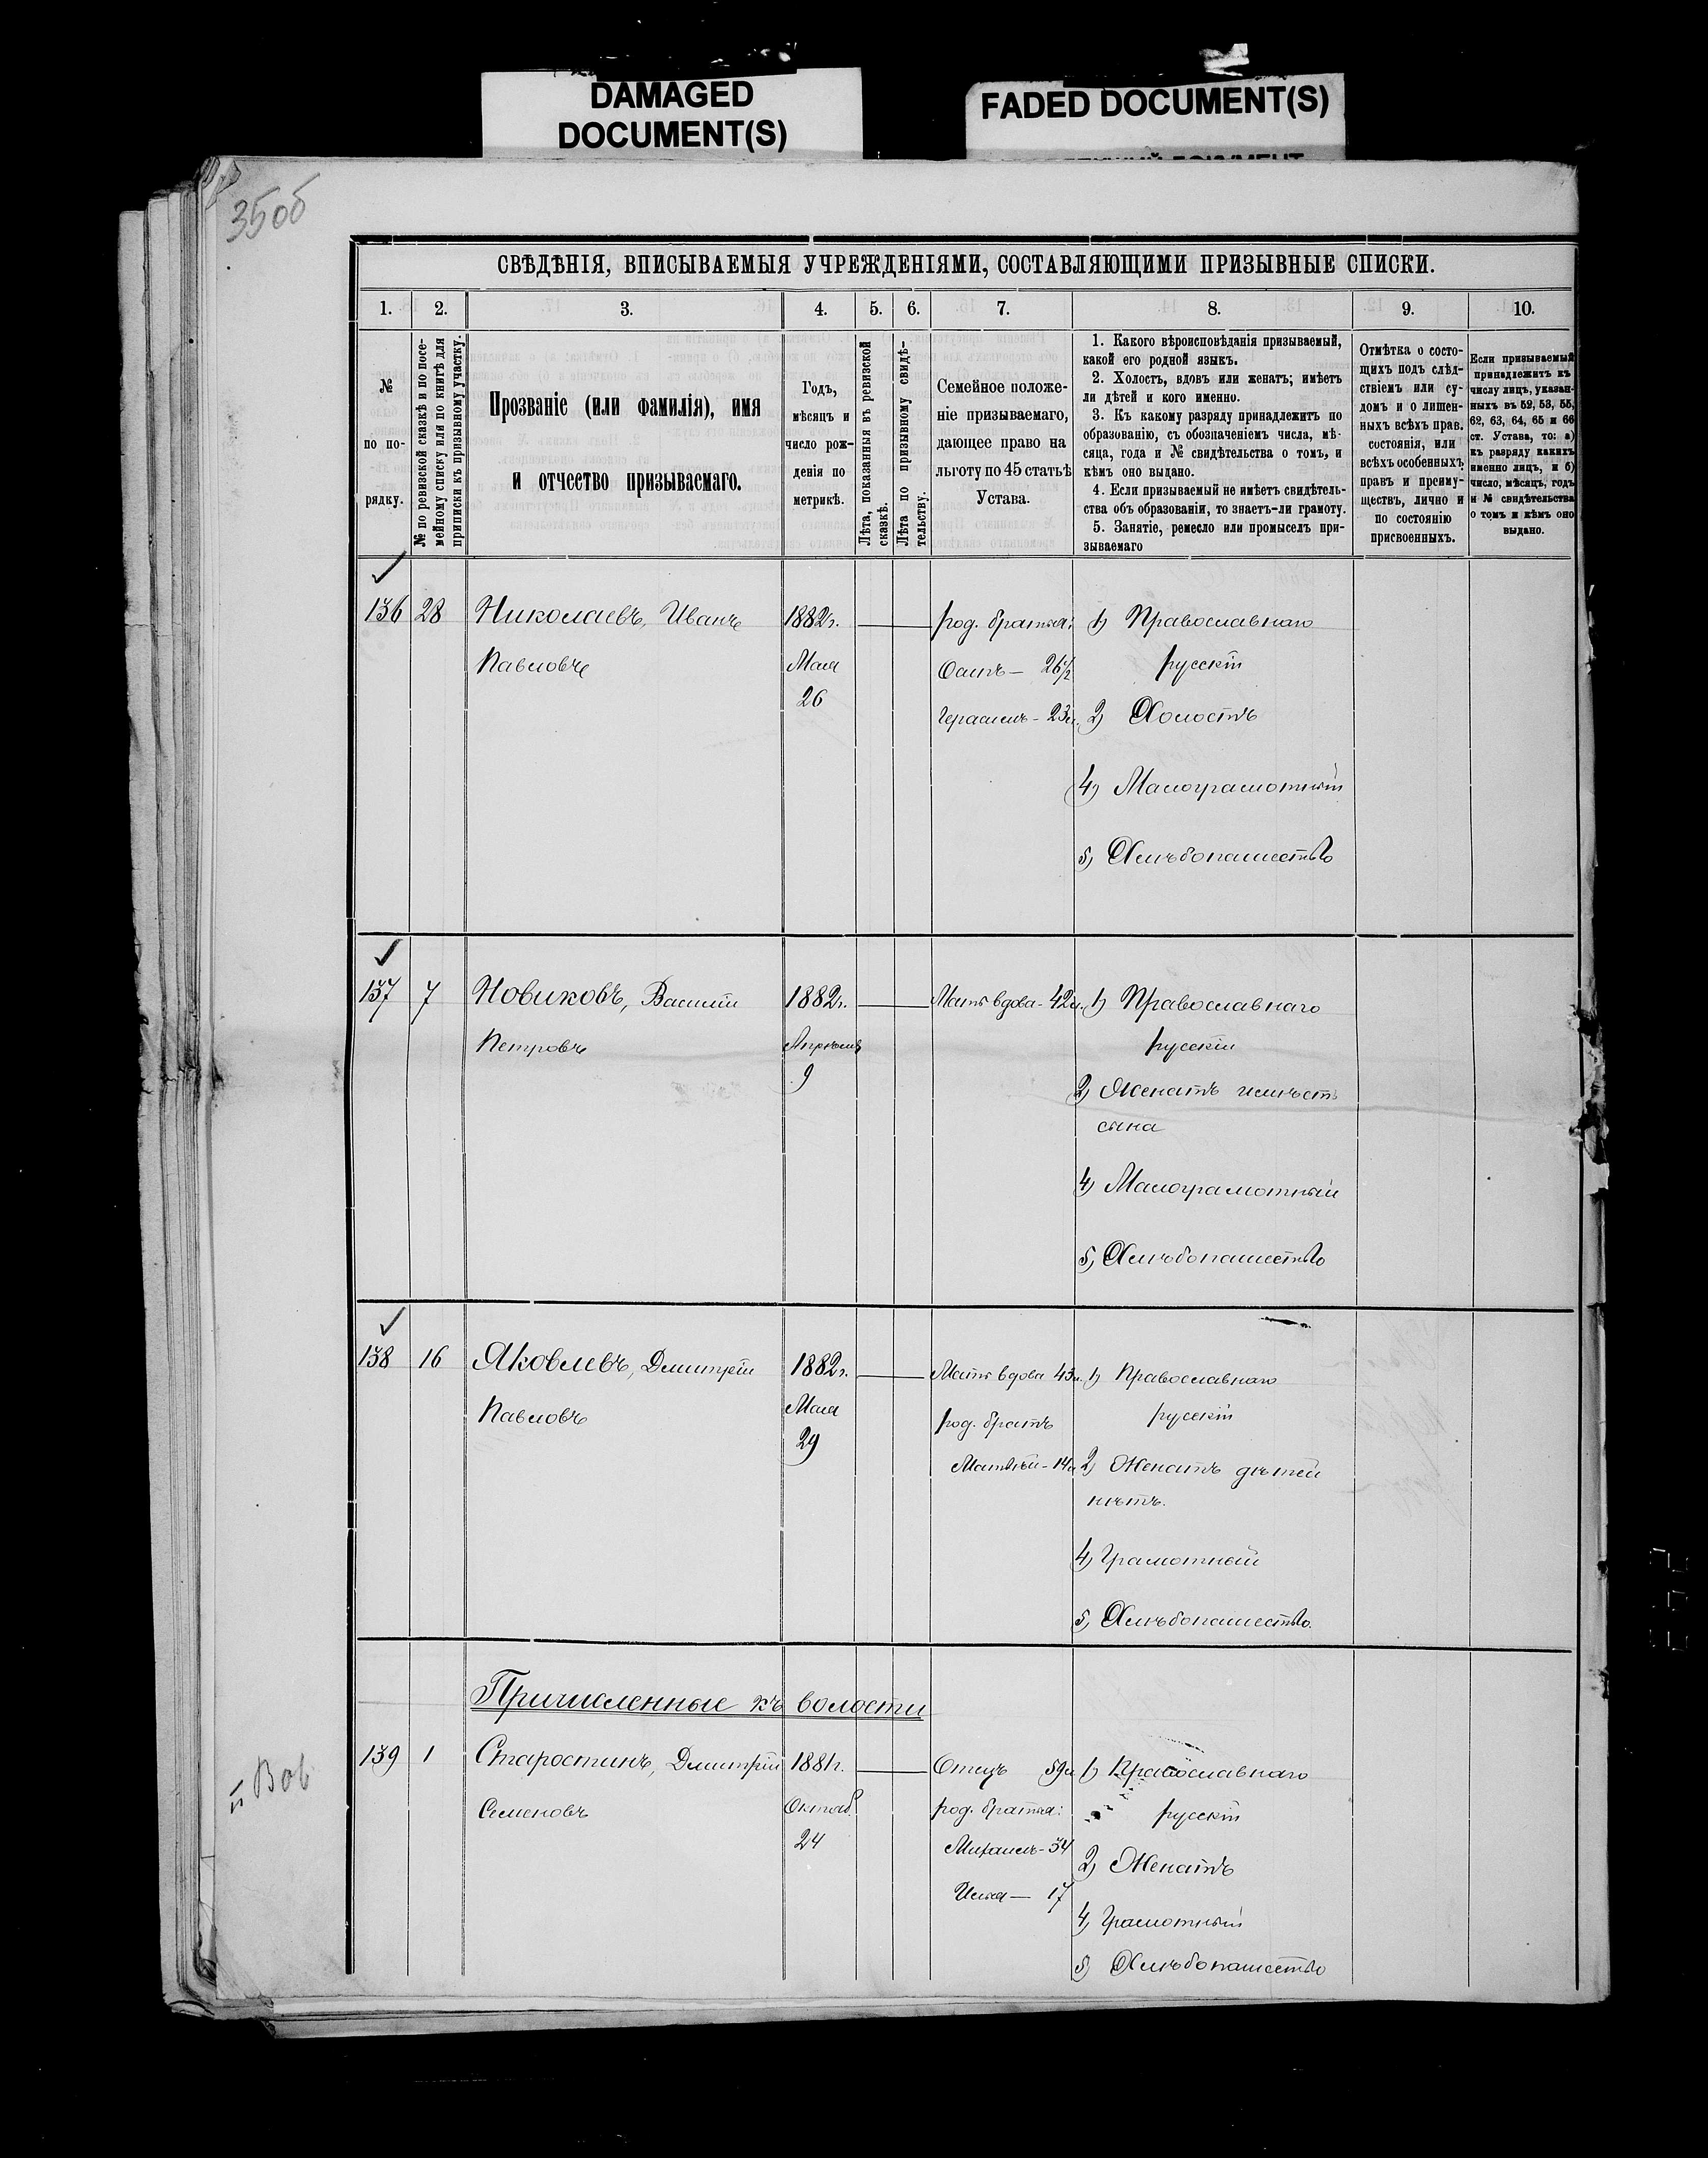 DAMAGED
DOCUMENT(S)
FADED DOCUMENT(S)
35об
СВѢДѢНІЯ, ВПИСЫВАЕМЫЯ УЧРЕЖДЕНІЯМИ, СОСТАВЛЯЮЩИМИ ПРИЗЫВНЫЕ СПИСКИ.
1. 2. 3. 4. 5. 6. 7. 8. 9. 10.
№
по по-
рядку.
№ по ревизской сказкѣ и по посе-
мейному списку или по книгѣ для
приписки къ призывному участку.
Прозваніе (или фамилія), имя
и отчество призываемаго.
Годъ,
мѣсяцъ и
число рож-
денія по
метрикѣ.
Лѣта, показанныя въ ревизской
сказкѣ.
Лѣта по призывному свидѣ-
тельству.
Семейное положе-
ніе призываемаго,
дающее право на
льготу по 45 статьѣ
Устава.
1. Какого вѣроисповѣданія призываемый,
какой его родной языкъ.
2. Холостъ, вдовъ или женатъ; имѣетъ
ли дѣтей и кого именно.
3. Къ какому разряду принадлежитъ по
образованію, съ обозначеніемъ числа, мѣ-
сяца, года и № свидѣтельства о томъ, и
кѣмъ оно выдано.
4. Если призываемый не имѣетъ свидѣтель-
ства объ образованіи, то знаетъ-ли грамоту.
5. Занятіе, ремесло или промыселъ при-
зываемаго
Отмѣтка о состо-
щихъ подъ слѣд-
ствіемъ или су-
домъ и о лишен-
ныхъ всѣхъ прав.
состоянія, или
всѣхъ особенныхъ
правъ и преиму-
ществъ, лично и
по состоянію
присвоенныхъ.
Если призываемый
принадлежитъ къ
числу лицъ, указан-
ныхъ въ 52, 53, 55,
62, 63, 64, 65 и 66
ст. Устава, то: а)
къ разряду какихъ
именно лицъ, и б)
число, мѣсяцъ, годъ
и № свидѣтельства
о томъ и кѣмъ оно
выдано.
136 28 Николаевъ, Иванъ 1882г. род. братья: 1) Православнаго
Павловъ Мая 26½ русскій
26
23 2) Холостъ
4) Малограмотный
5) Хлѣбопашество
137 7 Новиковъ, Василій 1882г. Мать вдова - 42л. 1) Православнаго
Петровъ Апрѣль русскій
9 2) Женатъ имѣетъ
сына
4) Малограмотный
5) Хлѣбопашество
138 16 Яковлевъ, Дмитрій 1882г. Мать вдова 43л. 1) Православнаго
Павловъ Мая род. братъ русскій
29 Матвѣй - 14л 2) Женатъ дѣтей
нѣтъ.
4) Грамотный
5) Хлѣбопашество.
Причисленные къ волости
139 1 Старостинъ, Дмитрій 1881г. Отецъ 59л 1) Православнаго
Семеновъ Октяб. род. братья: русскій
24 Михаилъ - 34 2) Женатъ
Илья — 17
4) Грамотный
5) Хлѣбопашество